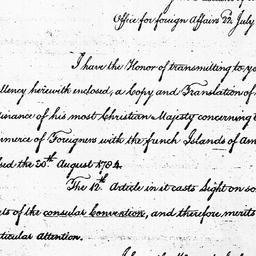 Office for foreign Affairs 22 July
I have the Honor of transmitting to yo
llency herewith enclosed, a Copy and Translation of
inance of his most Christian Majesty concerning t
merce of Foreigners with the french Islands of Am
sed the 30th August 1784.
The 12th Article in it casts Light on so
ts of the consular Convention, and therefore merits
ticular Attention.